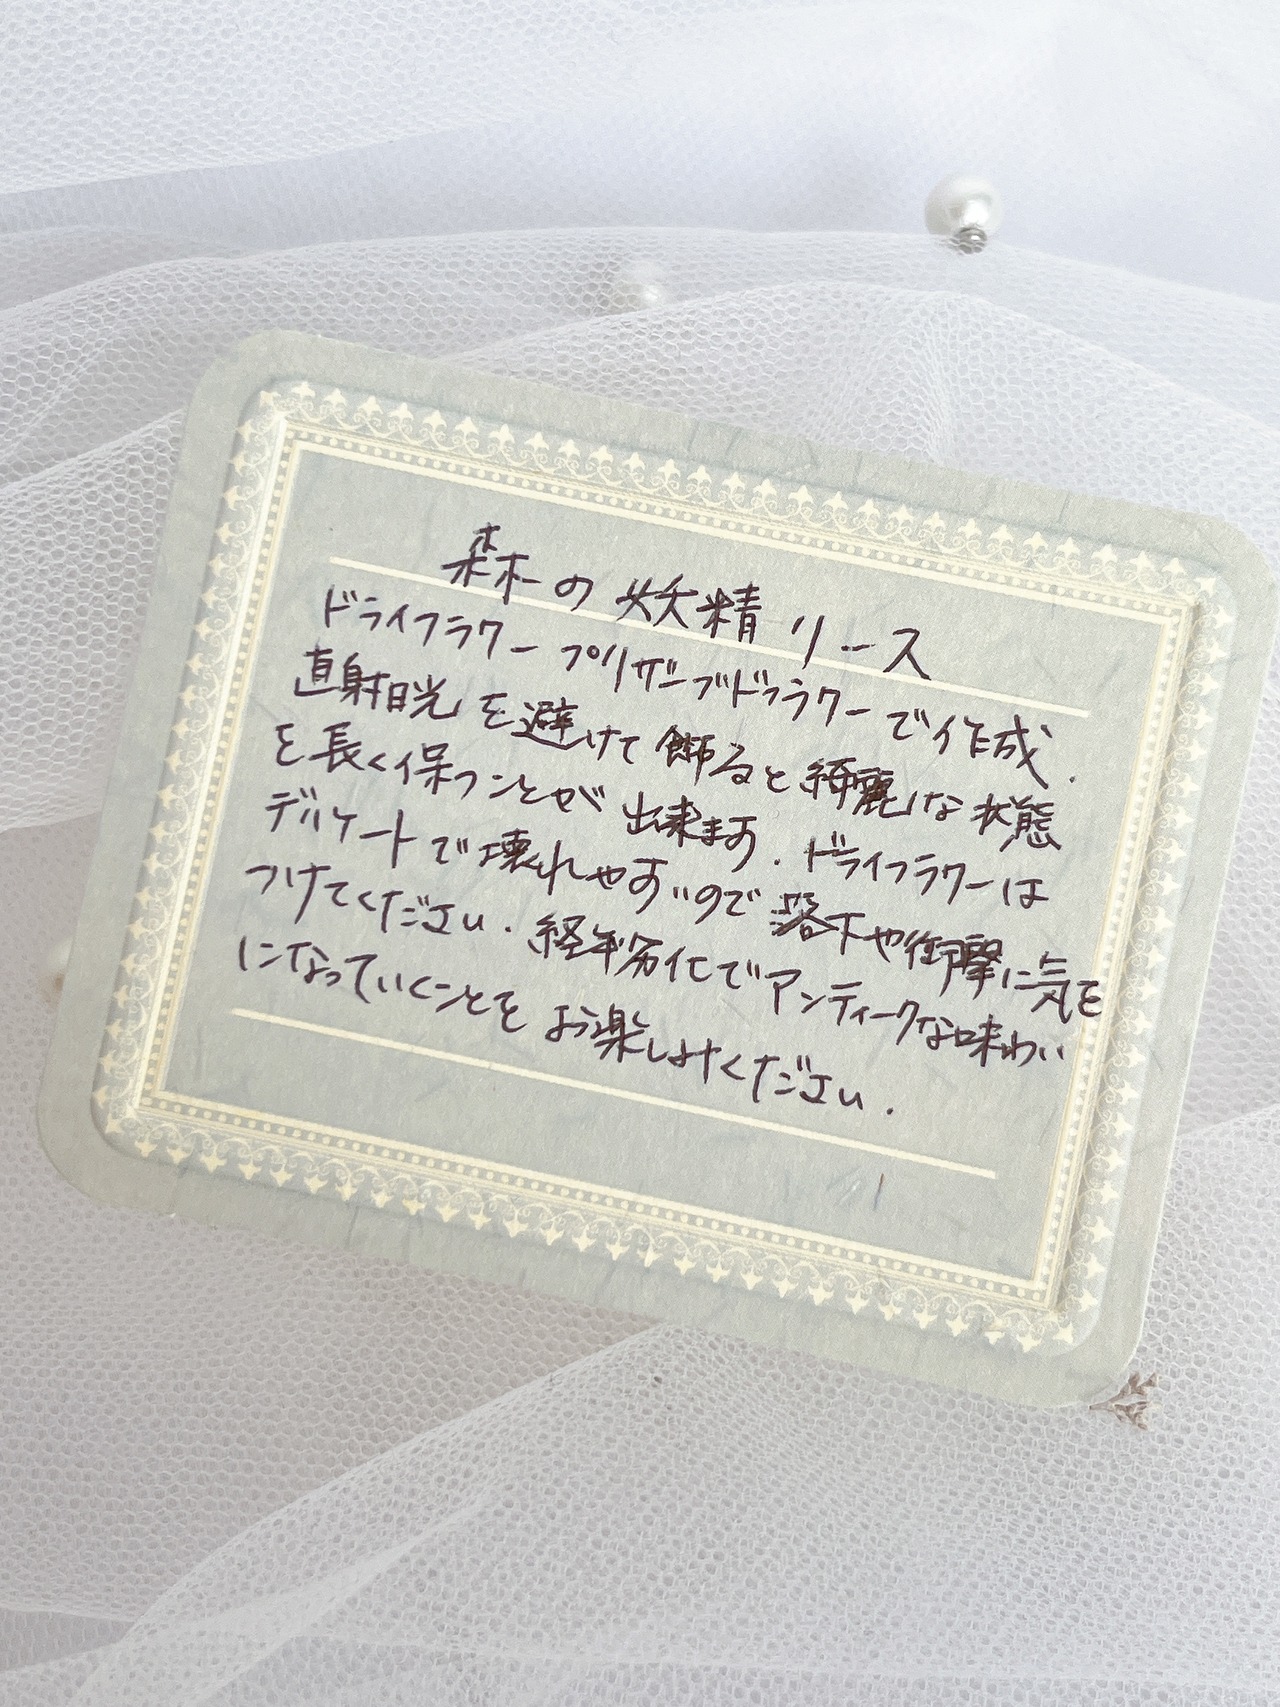 森の妖精リース
ドライフラワー プリザーブドフラワーで作成.
直射日光を避けて飾ると綺麗な状態
を長く保つことが出来ます. ドライフラワーは
デリケートで壊れやすいので落下や衝撃に気を
つけてください. 経年劣化でアンティークな味わい
になっていくことをお楽しみください.